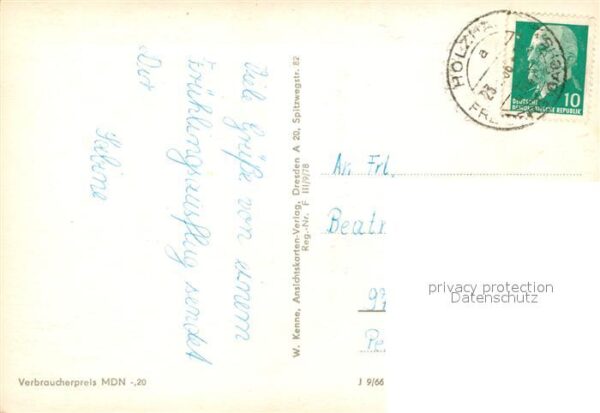 Viele Grüße von einem
Frühlingsausflug sendet
Dir
Sabine
W. Kenne, Ansichtskarten-Verlag, Dresden A 20, Spitzwegstr. 82
Reg.-Nr. F III/9/78
HOLZHA
FRE
23
a
DEUTSCHE
DEMOKRATISCHE REPUBLIK
10
An Frl.
Beatr
99
Pe
privacy protection
Datenschutz
Verbraucherpreis MDN -,20
J 9/66